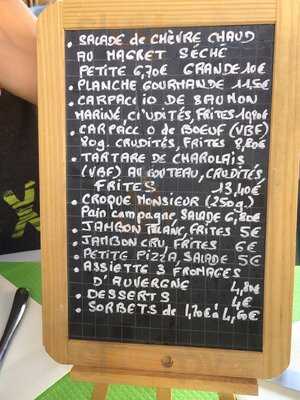 • SALADE de CHÈVRE CHAUD
AU MAGRET SÉCHÉ
PETITE 6,70€ GRANDE 10€
• PLANCHE GOURMANDE 11,5€
• CARPACCIO DE SAUMON
MARINÉ, CRUDITÉS, FRITES
• CARPACCIO de BOEUF (VBF)
80g. CRUDITÉS, FRITES 8,80€
• TARTARE DE CHAROLAIS
(VBF) AU COUTEAU, CRUDITÉS,
FRITES 13,40€
• CROQUE MONSIEUR (250g.)
Pain campagne SALADE 6,80€
• JAMBON BLANC, FRITES 5€
• JAMBON CRU, FRITES 6€
• PETITE PIZZA, SALADE 5€
• ASSIETTE 3 FROMAGES
D'AUVERGNE 4,80€
• DESSERTS 4€
• SORBETS de 1,70€ à 4,60€